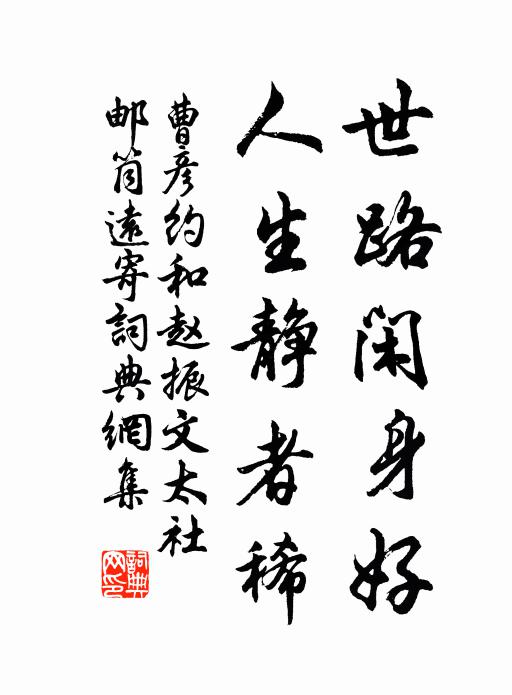 世路闲身好
人生静者稀
曹彦约和赵振文太社
邮筒远寄詞典網集
詞典网印